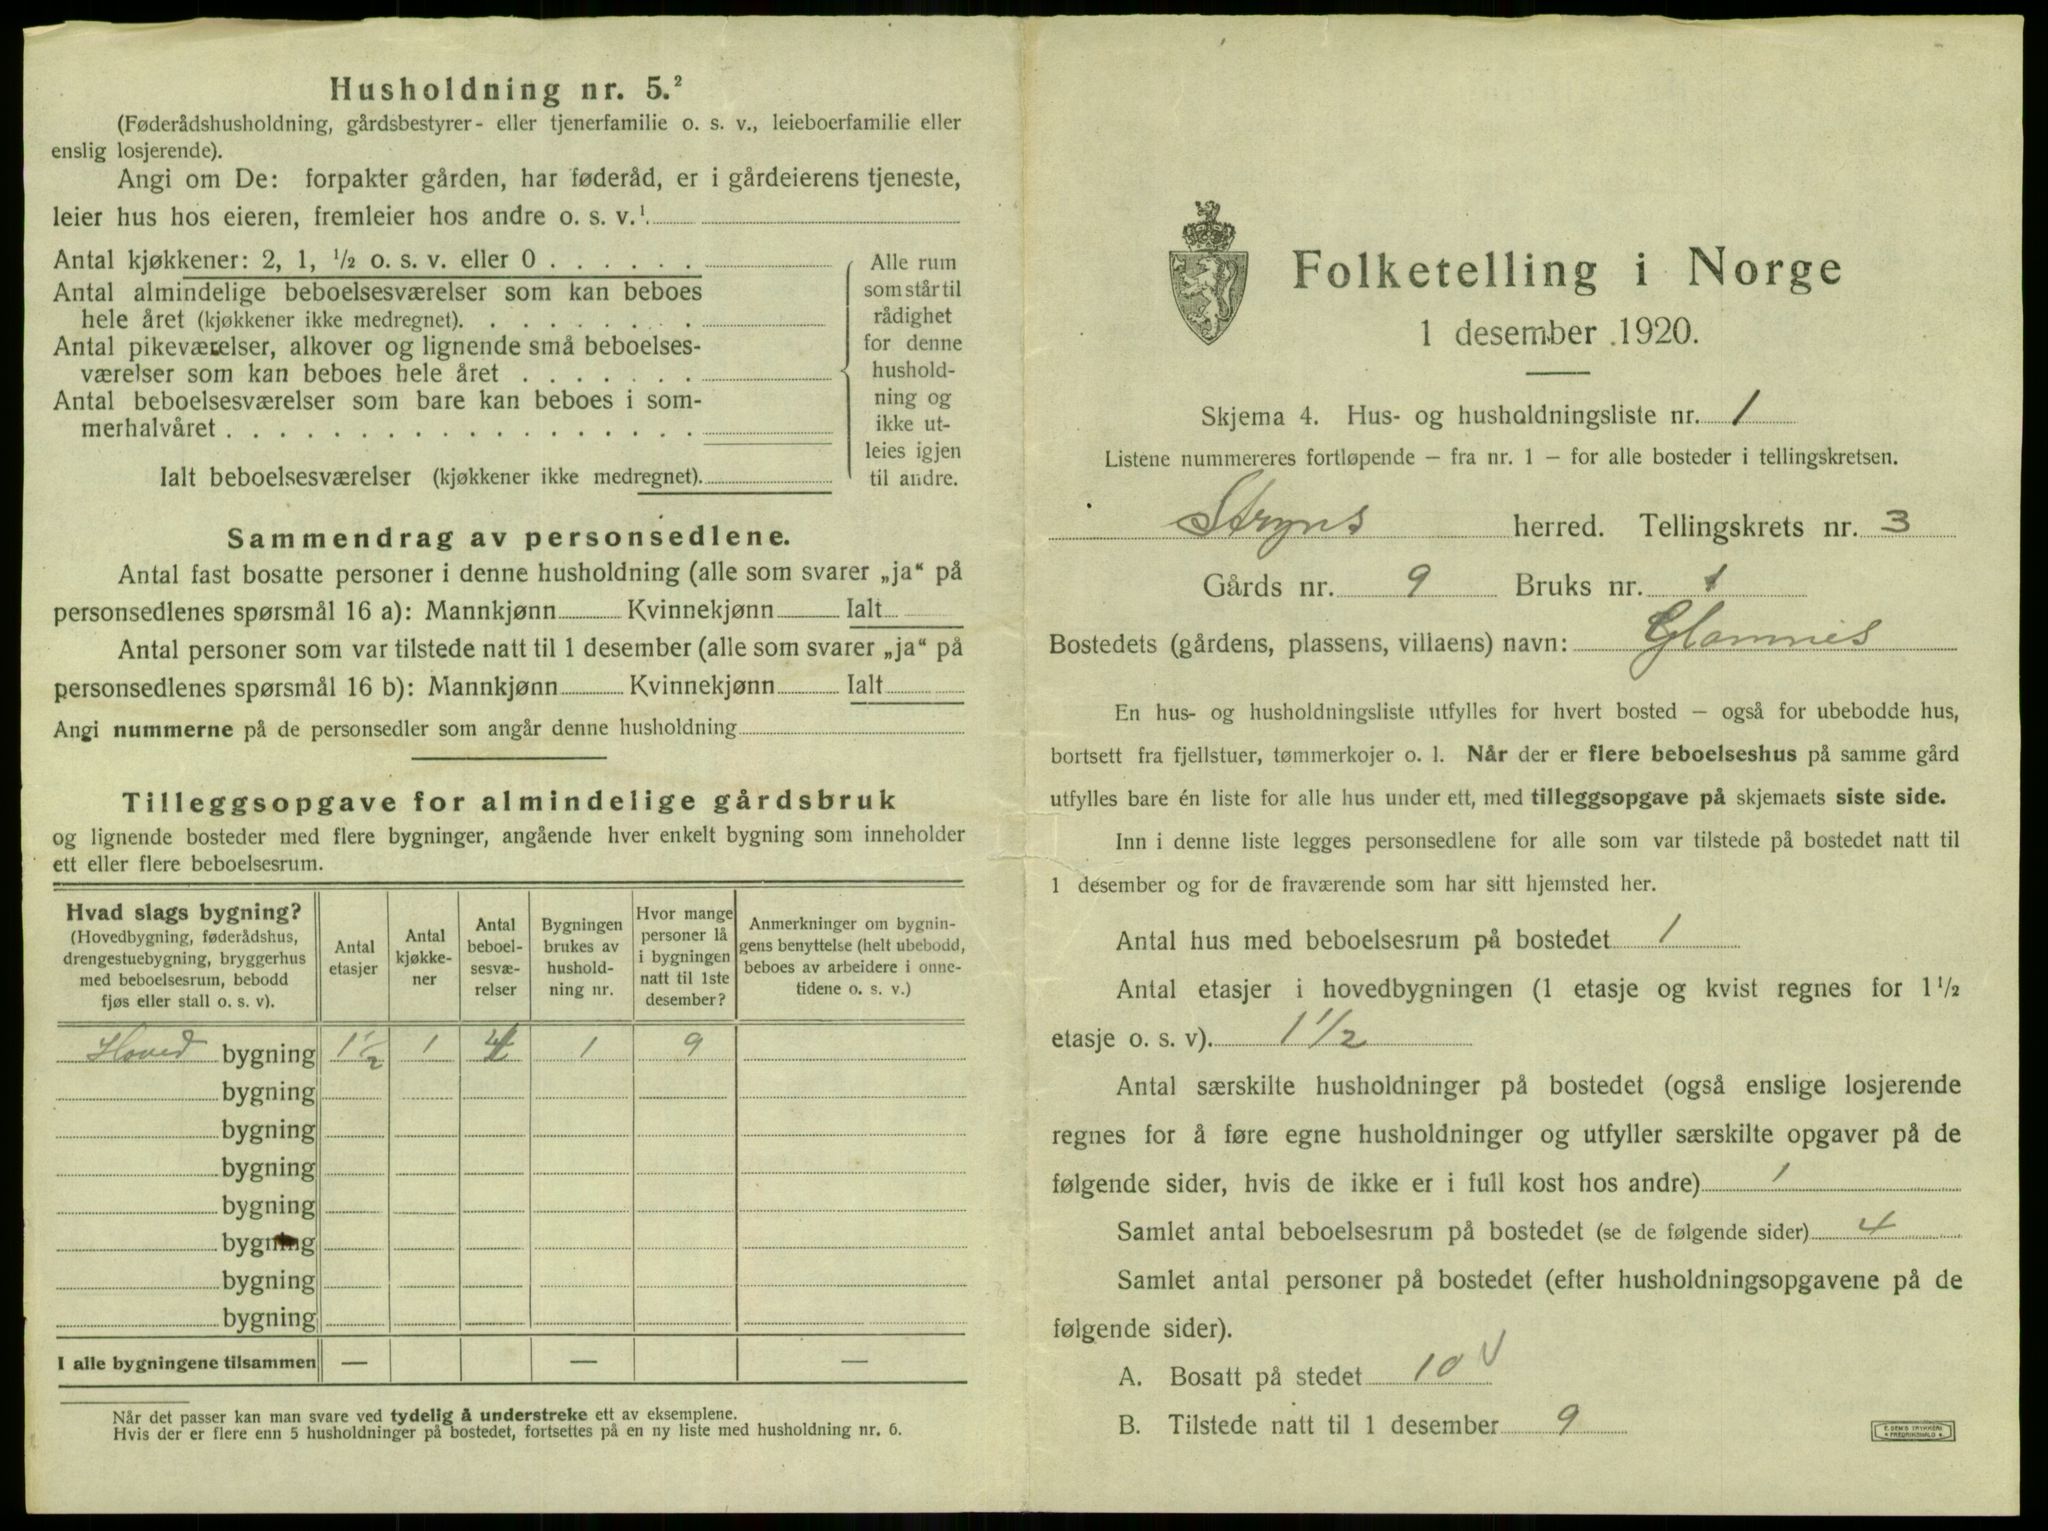 Husholdning nr. 5.²
(Føderådshusholdning, gårdsbestyrer- eller tjenerfamilie o. s. v., leieboerfamilie eller
enslig losjerende).
Angi om De: forpakter gården, har føderåd, er i gårdeierens tjeneste,
leier hus hos eieren, fremleier hos andre o. s. v.¹
Antal kjøkkener: 2, 1, ½ o. s. v. eller 0 . . . . . .
Antal almindelige beboelsesværelser som kan beboes
hele året (kjøkkener ikke medregnet). . . . . . . . .
Antal pikeværelser, alkover og lignende små beboelses-
værelser som kan beboes hele året . . . . . . .
Antal beboelsesværelser som bare kan beboes i som-
merhalvåret . . . . . . . . . . . . . . . . . .
Ialt beboelsesværelser (kjøkkener ikke medregnet).
Alle rum
som står til
rådighet
for denne
hushold-
ning og
ikke ut-
leies igjen
til andre.
Sammendrag av personsedlene.
Antal fast bosatte personer i denne husholdning (alle som svarer „ja“ på
personsedlenes spørsmål 16 a): Mannkjønn Kvinnekjønn Ialt
Antal personer som var tilstede natt til 1 desember (alle som svarer „ja“ på
personsedlenes spørsmål 16 b): Mannkjønn Kvinnekjønn Ialt
Angi nummerne på de personsedler som angår denne husholdning
Tilleggsopgave for almindelige gårdsbruk
og lignende bosteder med flere bygninger, angående hver enkelt bygning som inneholder
ett eller flere beboelsesrum.
Hvad slags bygning?
(Hovedbygning, føderådshus,
drengestuebygning, bryggerhus
med beboelsesrum, bebodd
fjøs eller stall o. s. v).
Antal
etasjer
Antal
kjøkke-
ner
Antal
beboel-
sesvæ-
relser
Bygningen
brukes av
hushold-
ning nr.
Hvor mange
personer lå
i bygningen
natt til 1ste
desember?
Anmerkninger om bygnin-
gens benyttelse (helt ubebodd,
beboes av arbeidere i onne-
tidene o. s. v.)
Hoved bygning 1½ 1 4 1 9
bygning
bygning
bygning
bygning
bygning
bygning
bygning
I alle bygningene tilsammen — — —
Når det passer kan man svare ved tydelig å understreke ett av eksemplene.
Hvis der er flere enn 5 husholdninger på bostedet, fortsettes på en ny liste med husholdning nr. 6.
Folketelling i Norge
1 desember 1920.
Skjema 4. Hus- og husholdningsliste nr. 1
Listene nummereres fortløpende – fra nr. 1 – for alle bosteder i tellingskretsen.
Stryns herred. Tellingskrets nr. 3
Gårds nr. 9 Bruks nr. 1
Bostedets (gårdens, plassens, villaens) navn: Glomnes
En hus- og husholdningsliste utfylles for hvert bosted – også for ubebodde hus,
bortsett fra fjellstuer, tømmerkojer o. l. Når der er flere beboelseshus på samme gård
utfylles bare én liste for alle hus under ett, med tilleggsopgave på skjemaets siste side.
Inn i denne liste legges personsedlene for alle som var tilstede på bostedet natt til
1 desember og for de fraværende som har sitt hjemsted her.
Antal hus med beboelsesrum på bostedet 1
Antal etasjer i hovedbygningen (1 etasje og kvist regnes for 1½
etasje o. s. v). 1½
Antal særskilte husholdninger på bostedet (også enslige losjerende
regnes for å føre egne husholdninger og utfyller særskilte opgaver på de
følgende sider, hvis de ikke er i full kost hos andre) 1
Samlet antal beboelsesrum på bostedet (se de følgende sider) 4
Samlet antal personer på bostedet (efter husholdningsopgavene på de
følgende sider).
A. Bosatt på stedet 10 V
B. Tilstede natt til 1 desember 9
FREDRIKSHALD